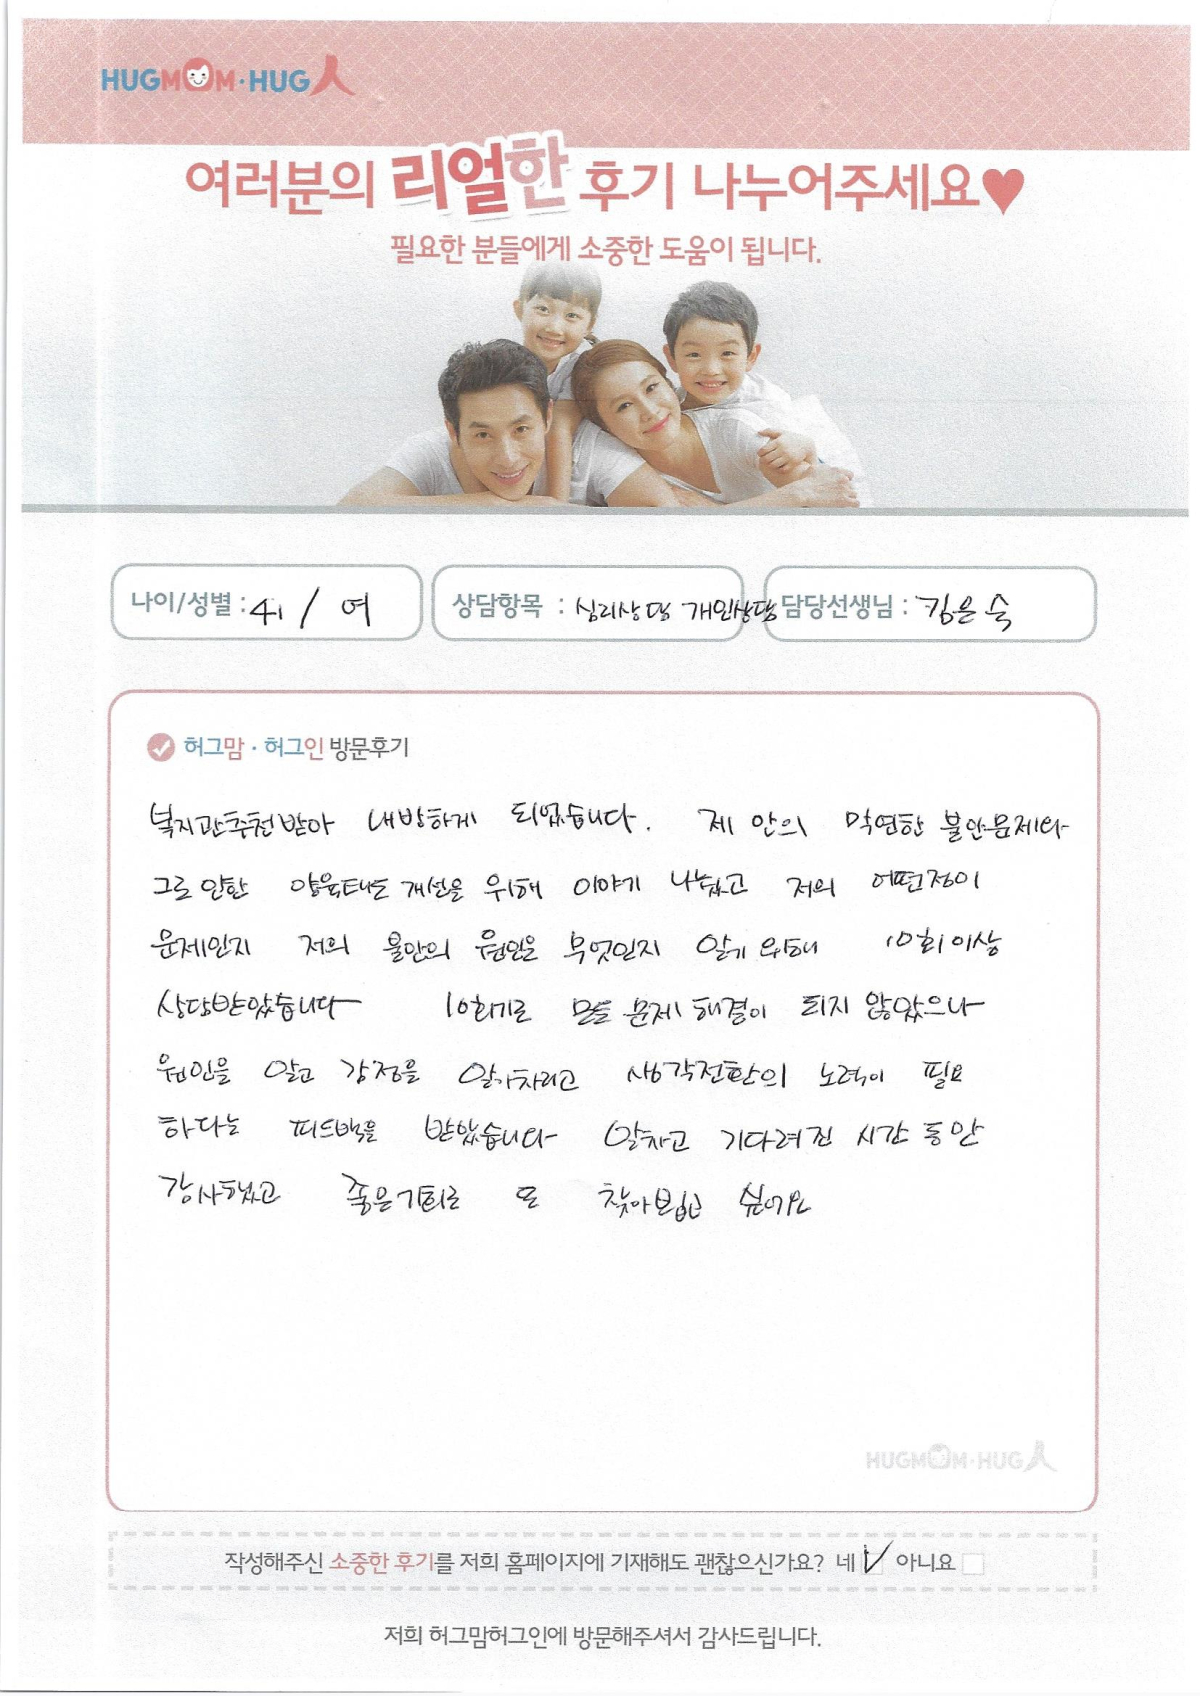 HUGMOM·HUG人
여러분의 리얼한 후기 나누어주세요♥
필요한 분들에게 소중한 도움이 됩니다.
나이/성별 : 41 / 여 상담항목 : 심리상담 개인상담 담당선생님 : 김은숙
허그맘 · 허그인 방문후기
복지관추천받아 내방하게 되었습니다. 제 안의 막연한 불안문제와
그로 인한 양육태도 개선을 위해 이야기 나눴고 저의 어떤점이
문제인지 저의 불안의 원인은 무엇인지 알기 위해 10회이상
상담받았습니다 10회기로 모든 문제 해결이 되지 않았으나
원인을 알고 감정을 알아차리고 생각전환의 노력이 필요
하다는 피드백을 받았습니다 알차고 기다려진 시간 동안
감사했고 좋은기회로 또 찾아뵙고 싶어요
HUGMOM·HUG人
작성해주신 소중한 후기를 저희 홈페이지에 기재해도 괜찮으신가요? 네 ✓ 아니요
저희 허그맘허그인에 방문해주셔서 감사드립니다.